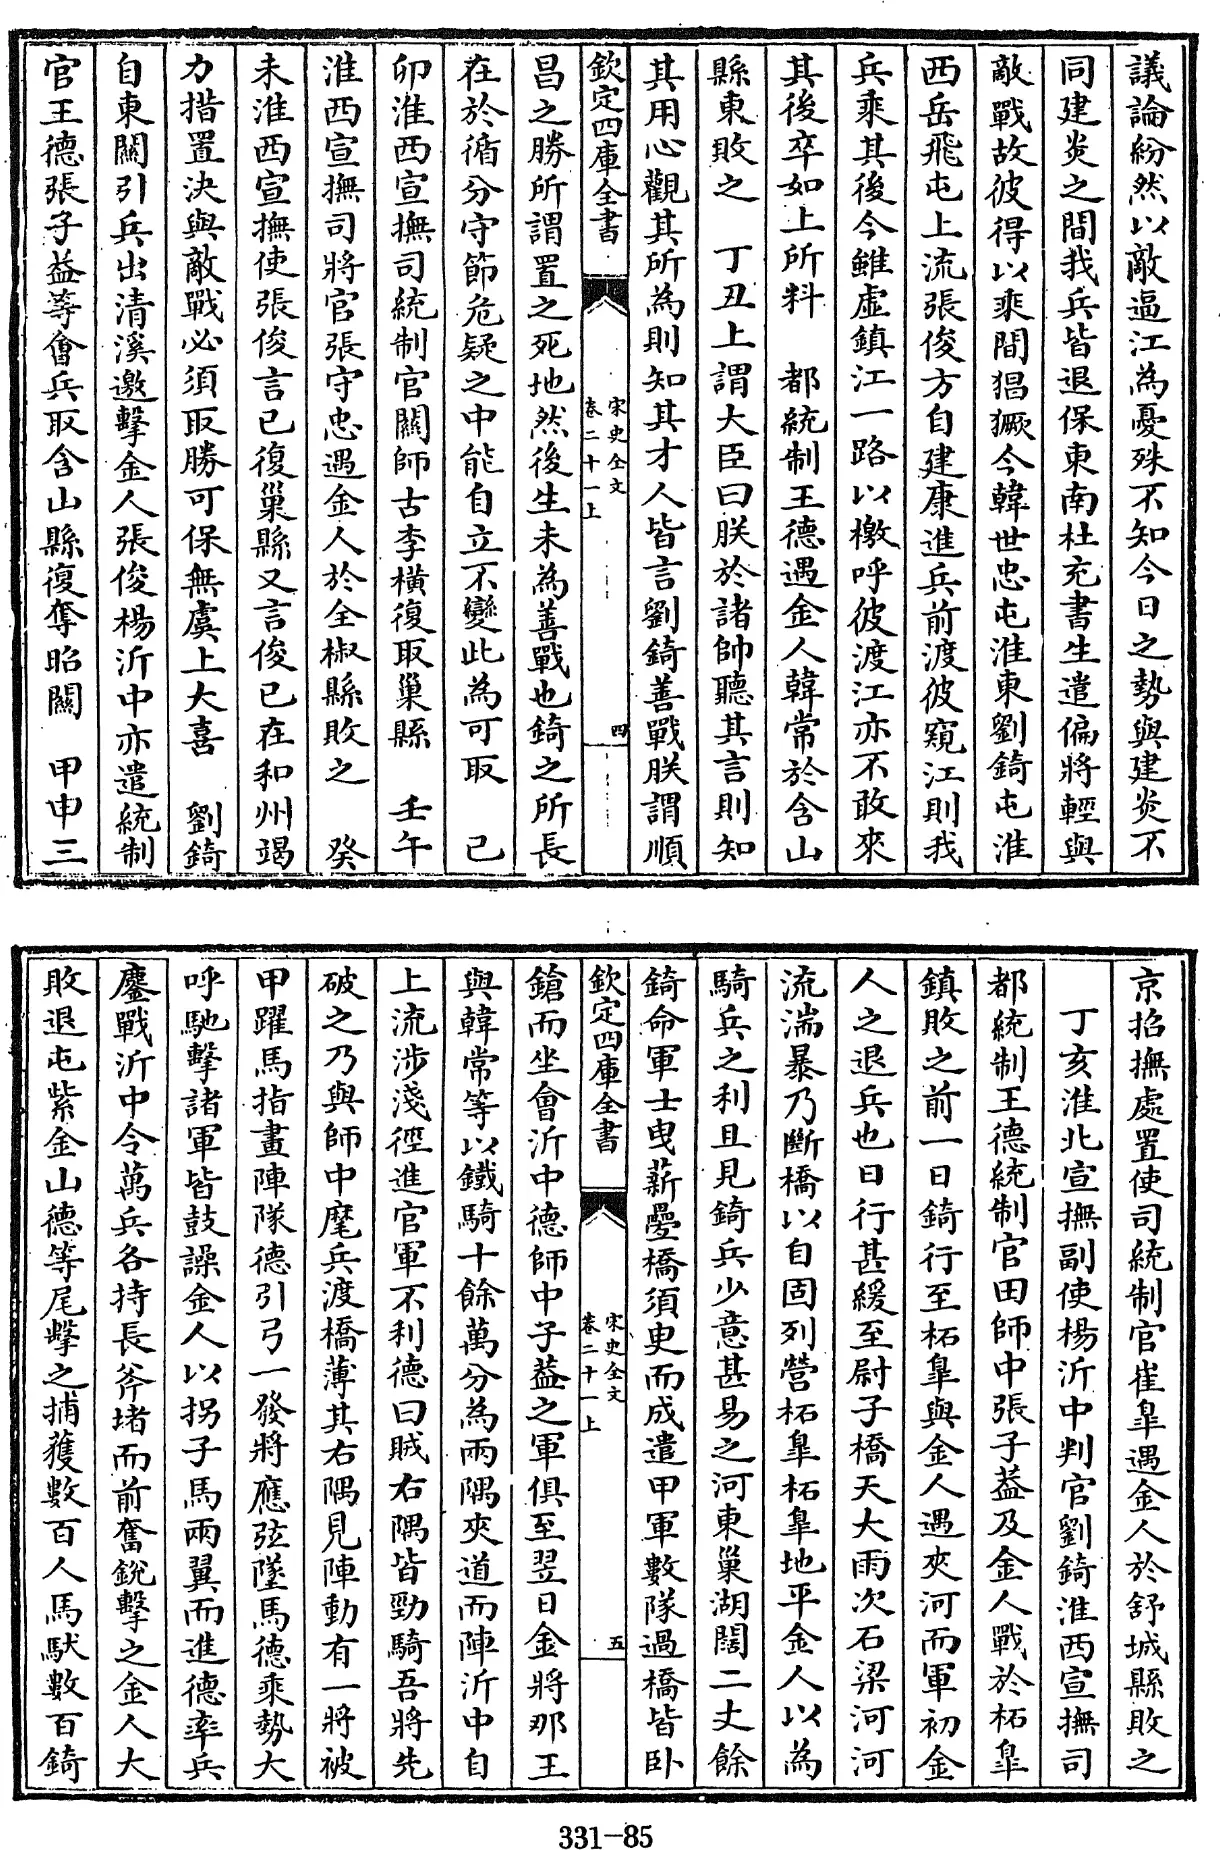 議論紛然以敵逼江為憂殊不知今日之勢與建炎不
同建炎之間我兵皆退保東南杜充書生遣偏將輕與
敵戰故彼得以乘間猖獗今韓世忠屯淮東劉錡屯淮
西岳飛屯上流張俊方自建康進兵前渡彼窺江則我
兵乘其後今雖虛鎮江一路以檄呼彼渡江亦不敢來
其後卒如上所料　都統制王德遇金人韓常於含山
縣東敗之　丁丑上謂大臣曰朕於諸帥聽其言則知
其用心觀其所為則知其才人皆言劉錡善戰朕謂順
欽定四庫全書
宋史全文
卷二十一上
四
昌之勝所謂置之死地然後生未為善戰也錡之所長
在於循分守節危疑之中能自立不變此為可取　己
卯淮西宣撫司統制官關師古李橫復取巢縣　壬午
淮西宣撫司將官張守忠遇金人於全椒縣敗之　癸
未淮西宣撫使張俊言已復巢縣又言俊已在和州竭
力措置決與敵戰必須取勝可保無虞上大喜　劉錡
自東關引兵出清溪邀擊金人張俊楊沂中亦遣統制
官王德張子益等會兵取含山縣復奪昭關　甲申三
京招撫處置使司統制官崔皐遇金人於舒城縣敗之
　丁亥淮北宣撫副使楊沂中判官劉錡淮西宣撫司
都統制王德統制官田師中張子益及金人戰於柘皐
鎮敗之前一日錡行至柘皐與金人遇夾河而軍初金
人之退兵也日行甚緩至尉子橋天大雨次石梁河河
流湍暴乃斷橋以自固列營柘皐柘皐地平金人以為
騎兵之利且見錡兵少意甚易之河東巢湖闊二丈餘
錡命軍士曳薪壘橋須臾而成遣甲軍數隊過橋皆卧
欽定四庫全書
宋史全文
卷二十一上
五
鎗而坐會沂中德師中子益之軍俱至翌日金將那王
與韓常等以鐵騎十餘萬分為兩隅夾道而陣沂中自
上流涉淺徑進官軍不利德曰賊右隅皆勁騎吾將先
破之乃與師中麾兵渡橋薄其右隅見陣動有一將被
甲躍馬指畫陣隊德引弓一發將應弦墜馬德乘勢大
呼馳擊諸軍皆鼓譟金人以拐子馬兩翼而進德率兵
鏖戰沂中令萬兵各持長斧堵而前奮銳擊之金人大
敗退屯紫金山德等尾擊之捕獲數百人馬馱數百錡
331-85